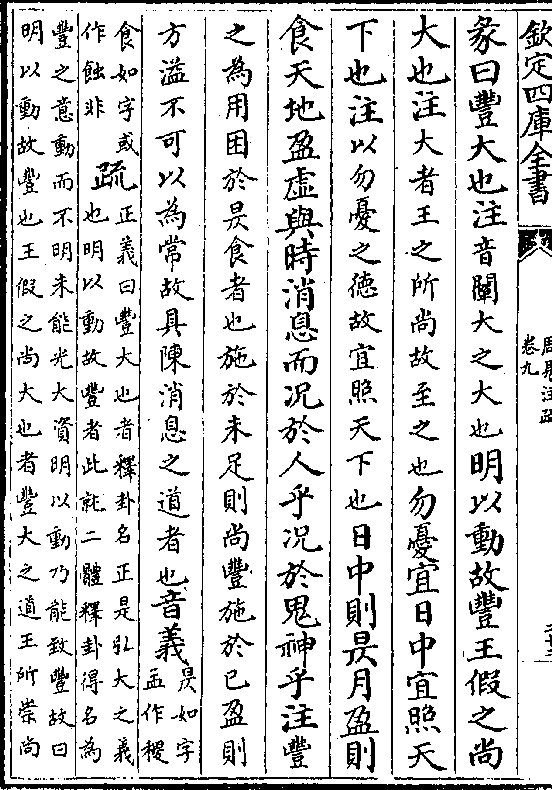 欽定四庫全書
周易注疏
卷九
彖曰豐大也注音闡大之大也明以動故豐王假之尚
大也注大者王之所尚故至之也勿憂宜日中宜照天
下也注以勿憂之徳故宜照天下也日中則昃月盈則
食天地盈虚與時消息而况於人乎况於鬼神乎注豐
之為用困於昃食者也施於未足則尚豐施於已盈則
方溢不可以為常故具陳消息之道者也音義昃如字孟作稷
食如字或作蝕非疏正義曰豐大也者釋卦名正是弘大之義
也明以動故豐者此就二體釋卦得名為
豐之意動而不明未能光大資明以動乃能致豐故曰
明以動故豐也王假之尚大也者豐大之道王所崇尚